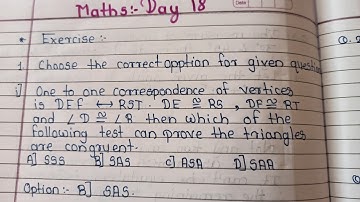 Maths:- Day 18
Exercise:-
1 Choose the correct opption for given question
i) One to one correspondence of vertices
is DEF ↔ RST. DE ≅ RS, DF ≅ RT
and ∠D ≅ ∠R then which of the
following test can prove the triangles
are congruent.
A] SSS B] SAS C] ASA D] SAA
Option:- B] SAS.